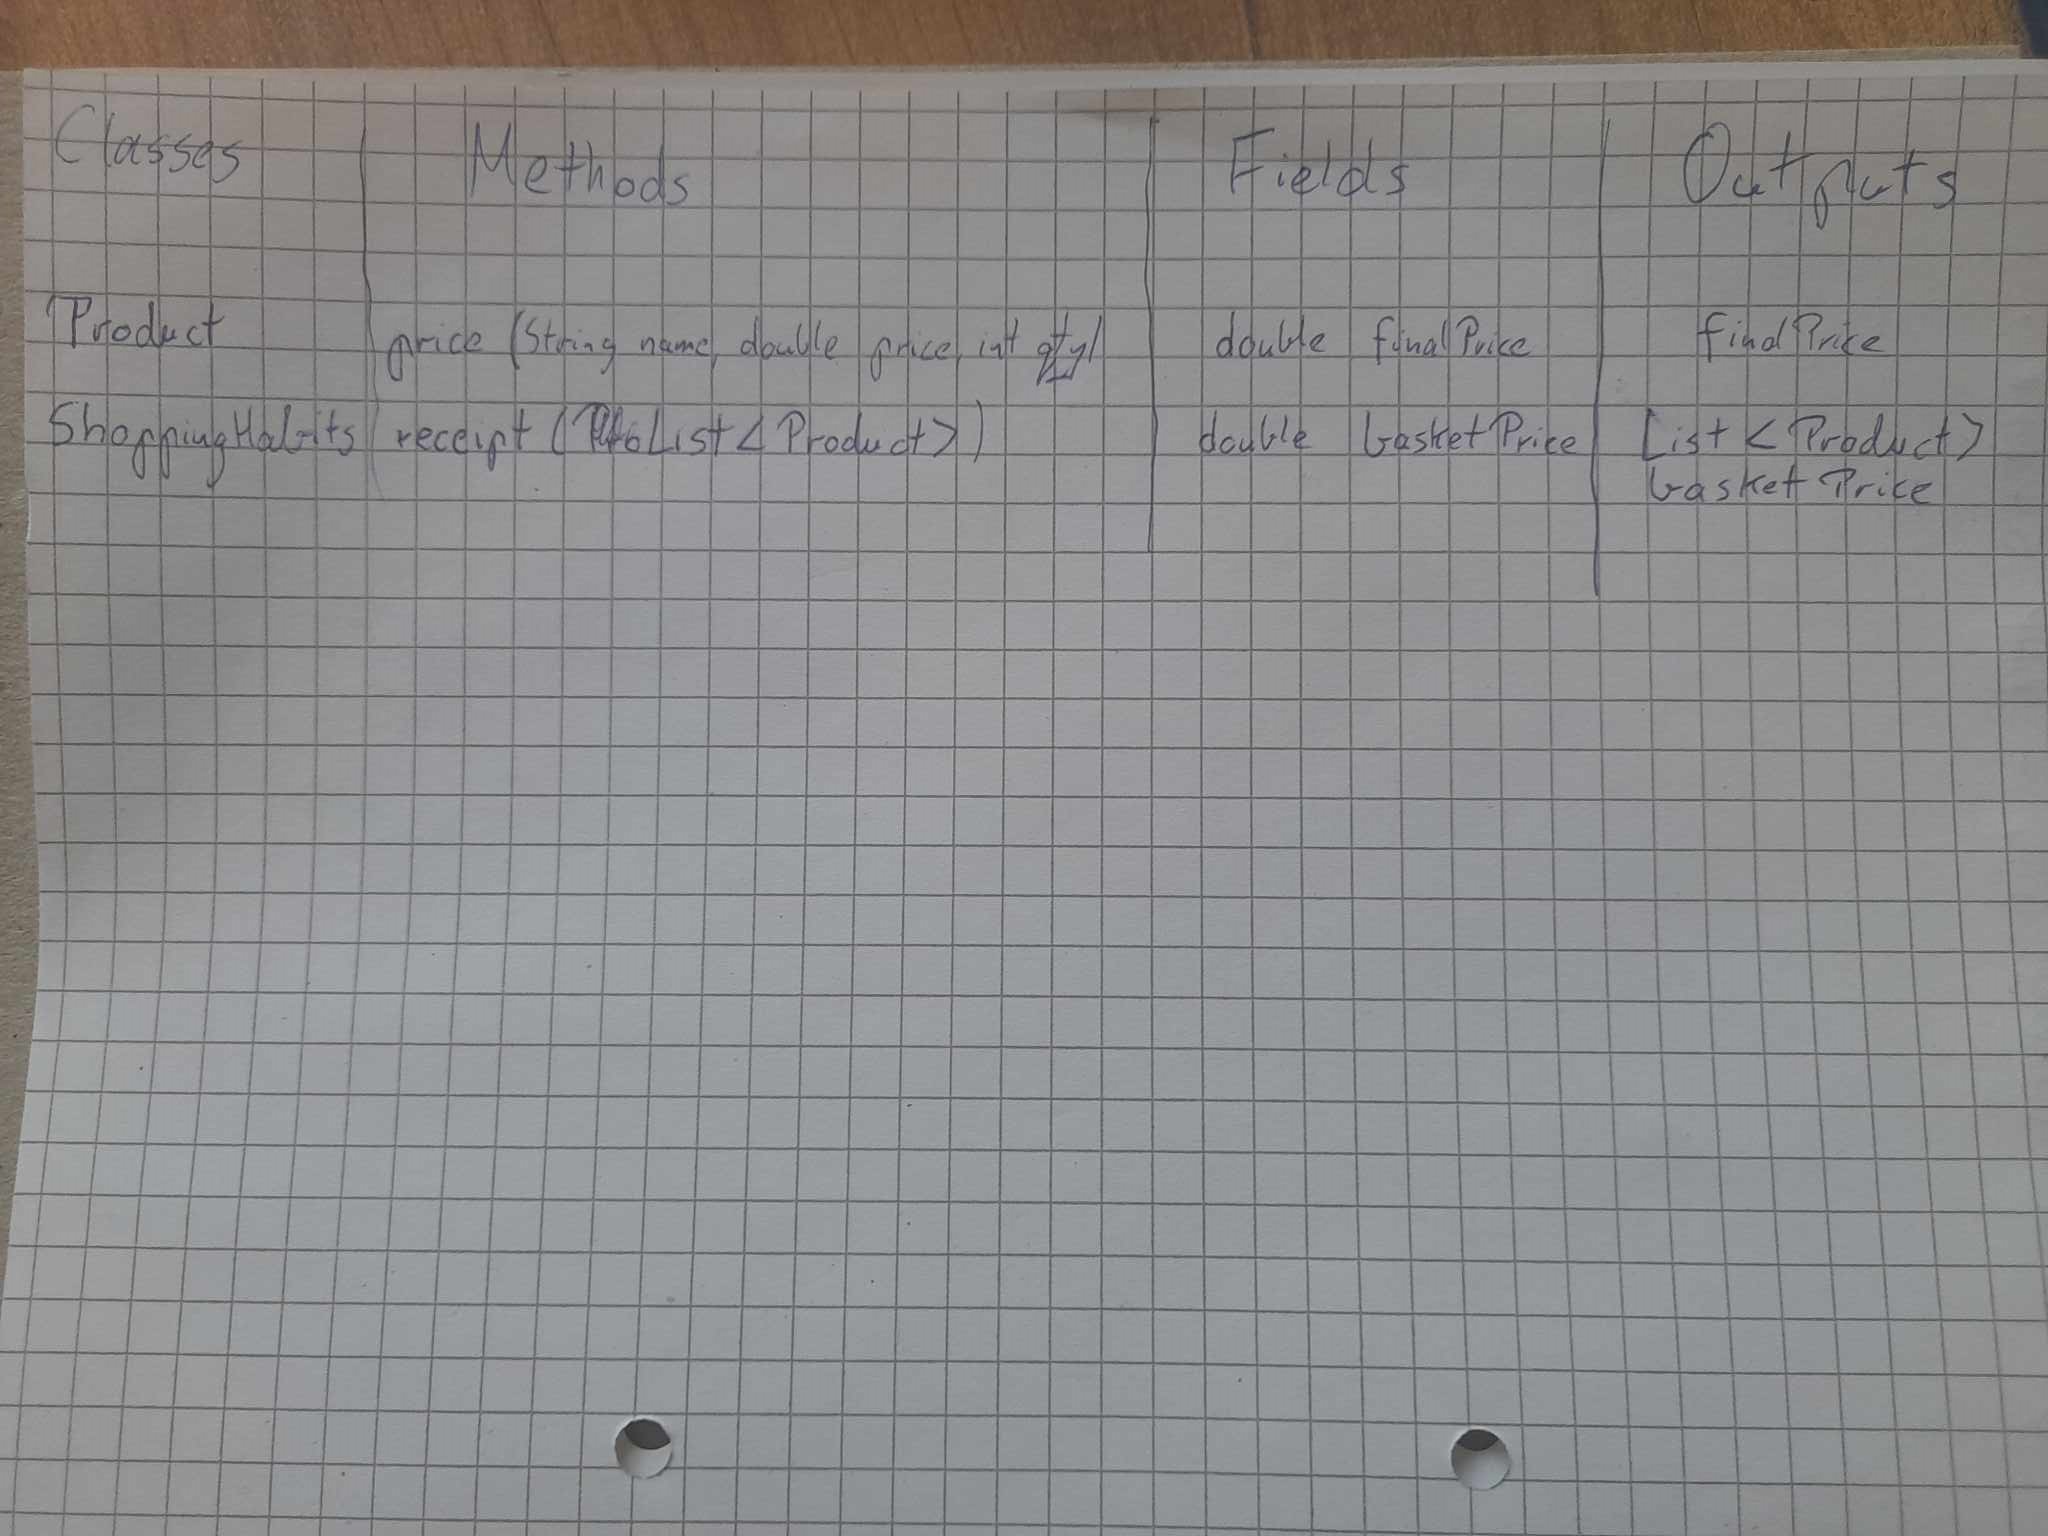 Classes Methods Fields Outputs
Product price (String name, double price, int qty) double finalPrice finalPrice
ShoppingHabits receipt ( List < Product > ) double basketPrice List < Product >
basketPrice